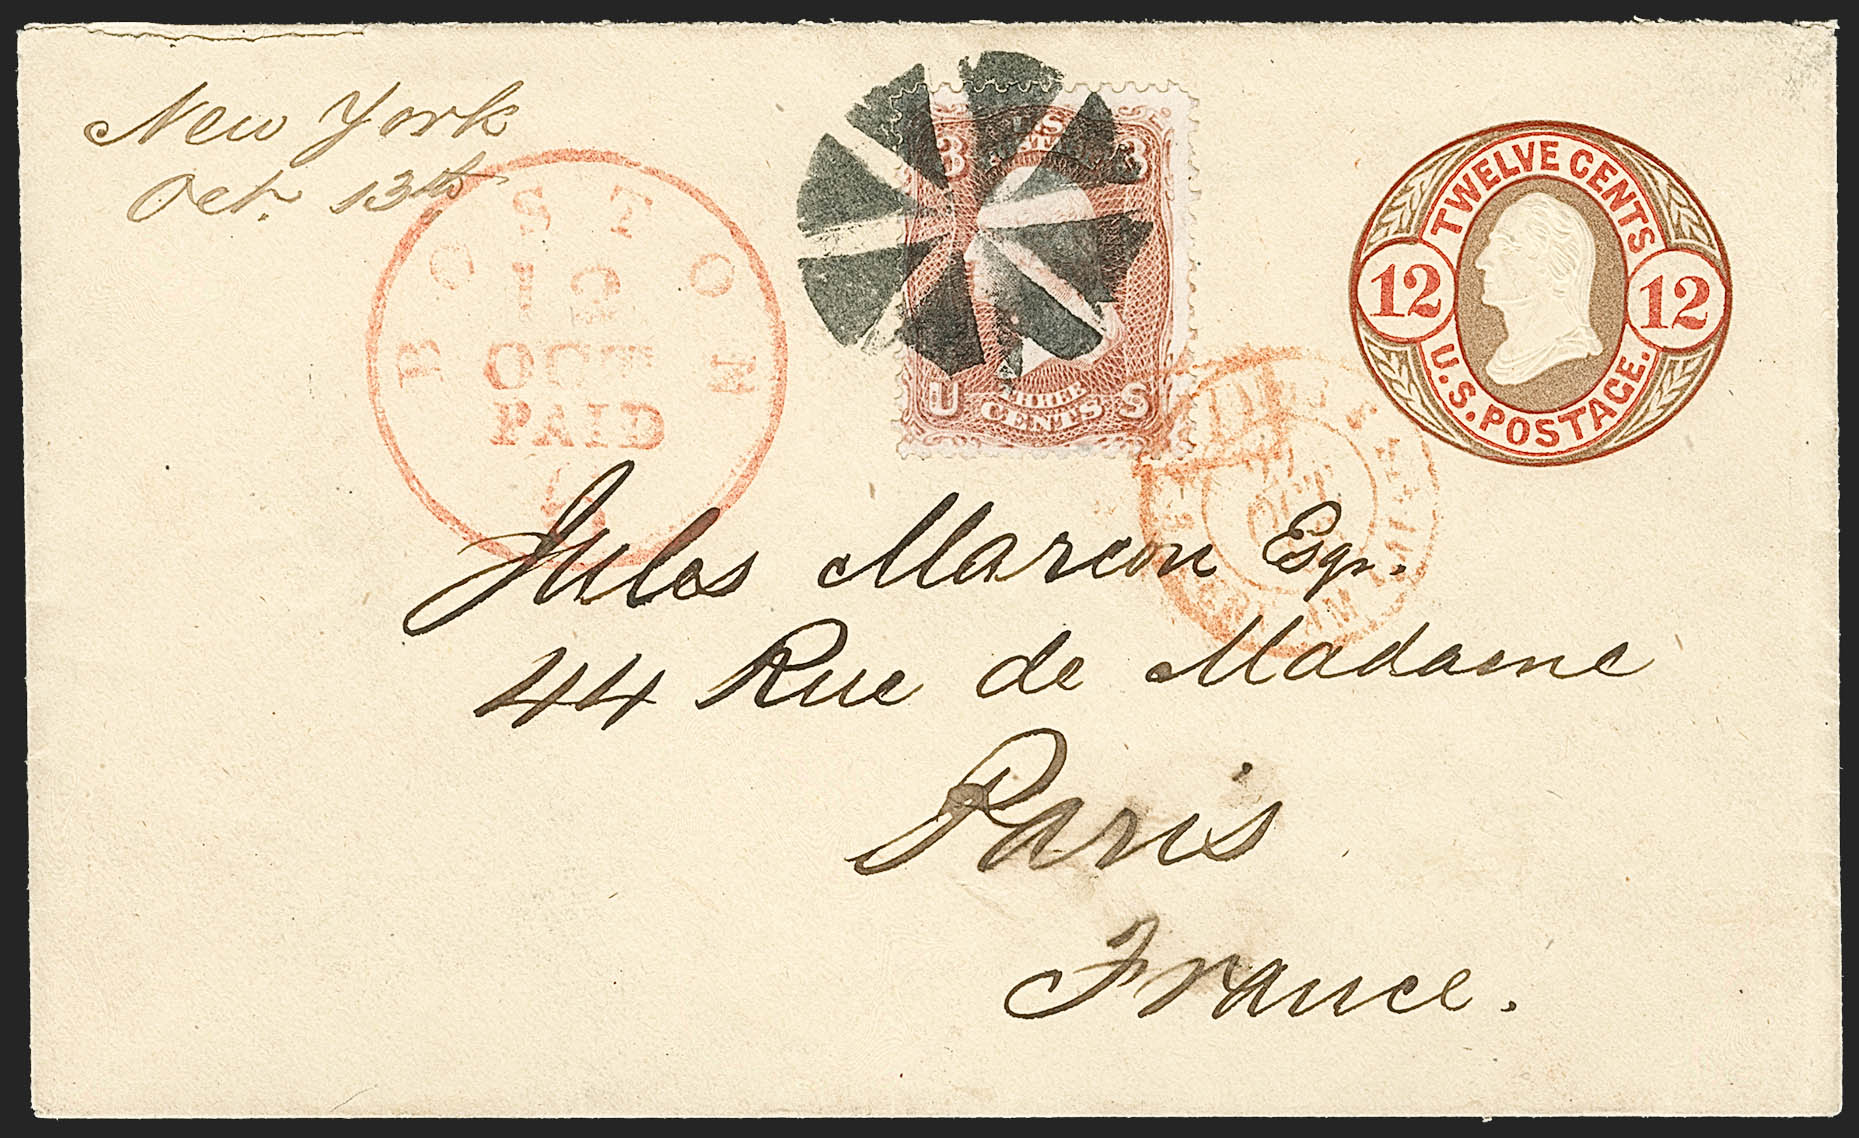 New York
Oct. 13th
BOSTON
12
OCT
PAID
3 3
U THREE S
CENTS
TWELVE CENTS
12 12
U.S. POSTAGE.
OCT
Jules Marcou Esqr.
44 Rue de Madame
Paris
France.